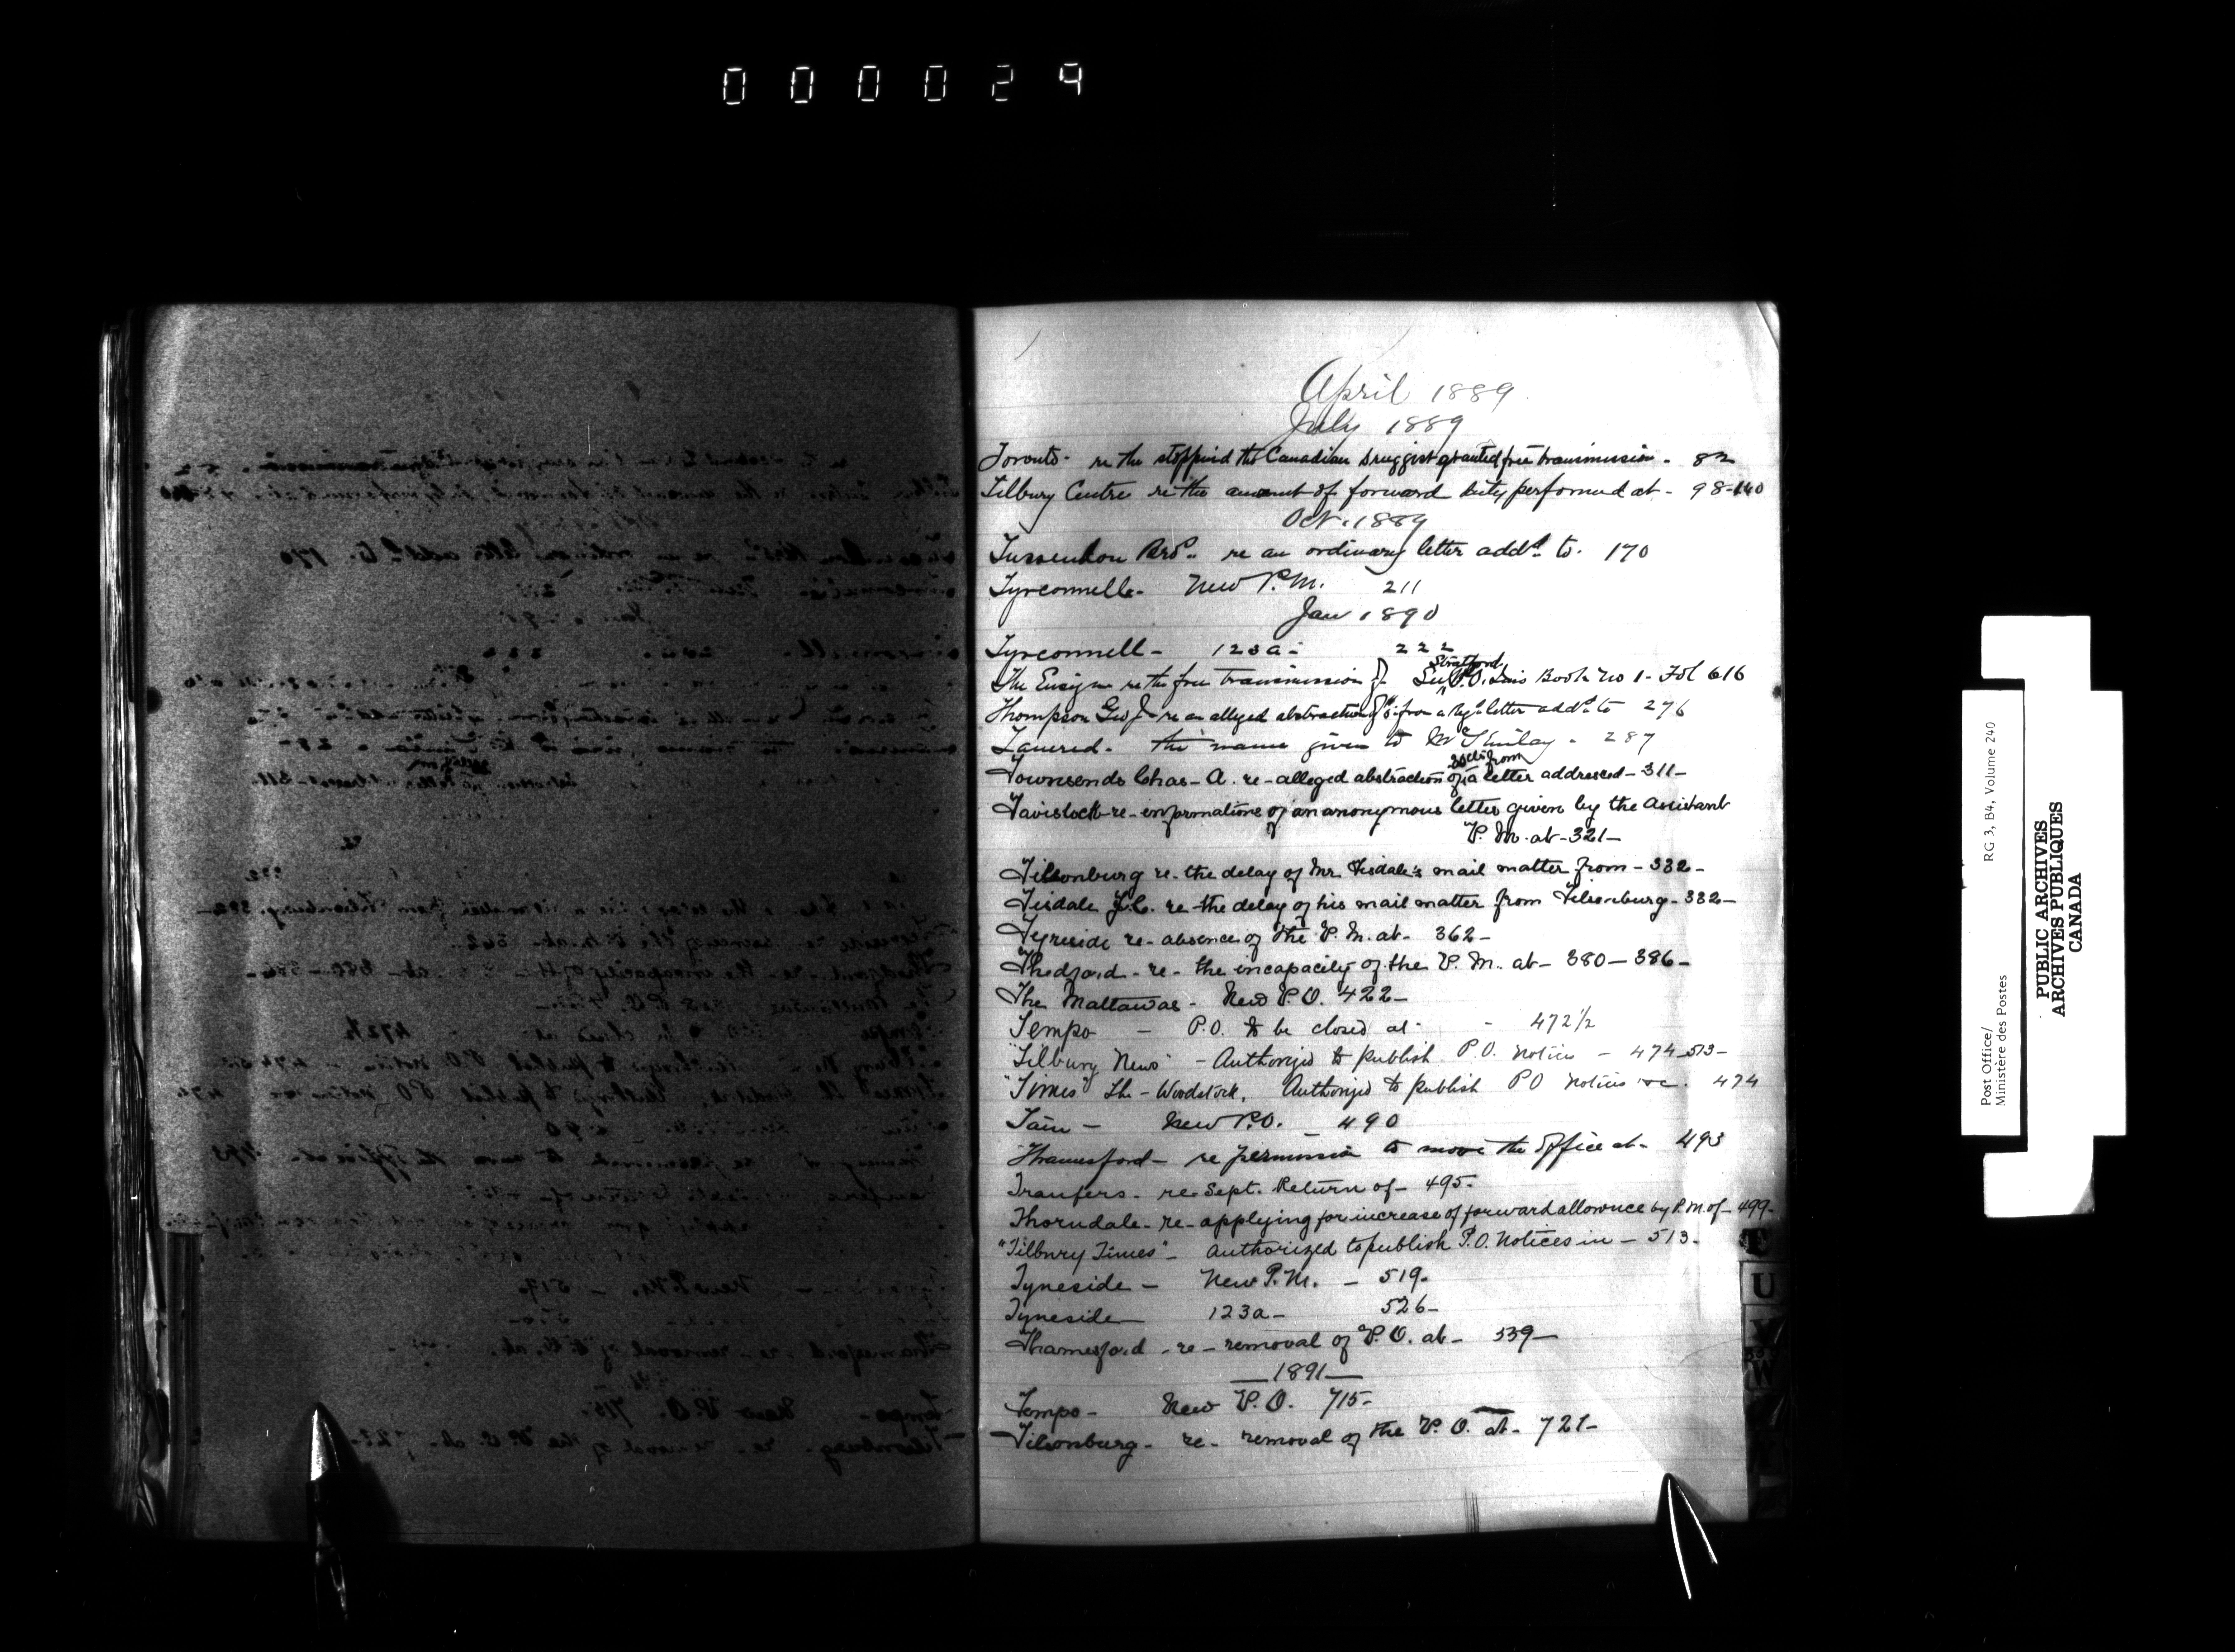 000029
April 1889
July 1889
Toronto - re the stoppind the Canadian Druggist granted free transmission - 82
Tilbury Centre re the amount of forward duty performed at - 98-140
Oct. 1889
Bros. re an ordinary letter addd. to. 170
Tyrconnell - New P.M. 211
Jan 1890
Tyrconnell - 123a - 222
The Ensign re the free transmission of - Stratford P.O. Book No 1 - Fol 616
Thompson Geo J - re an alleged abstraction of from a Regd letter addd. to 276
Tancred - the name given to - 287
Townsends Chas - A. re - alleged abstraction of from a letter addressed - 311 -
Tavistock - re - information of an anonymous letter given by the Assistant
P. M. at - 321 -
Tillsonburg re - the delay of Mr. Tisdale's mail matter from - 332 -
Tisdale J.C. re - the delay of his mail matter from Tilsonburg - 332 -
Tyneside re - absence of the P. M. at - 362 -
Thedford - re - the incapacity of the P. M. at - 380 - 386 -
The Mattawas - New P. O. 422 -
Tempo - P.O. to be closed at - 472 1/2
"Tilbury News" - Authorized to publish P.O. Notices - 474-513 -
"Times" The - Woodstock, Authorized to publish PO Notices &c. 474
Tain - New P.O. - 490
Thamesford - re permission to move the Office at - 493
Tranfers - re Sept. Return of - 495 -
Thorndale - re - applying for increase of forward allowance by P.M. of - 499 -
"Tilbury Times" - Authorized to publish P.O. Notices in - 513 -
Tyneside - New P.M. - 519 -
Tyneside - 123a - 526 -
Thamesford - re - removal of P. O. at - 539 -
1891
Tempo - New P. O. 715 -
Tilsonburg - re - removal of the P. O. at - 721 -
U
W
Post Office/ RG 3, B4, Volume 240
Ministère des Postes
PUBLIC ARCHIVES
ARCHIVES PUBLIQUES
CANADA